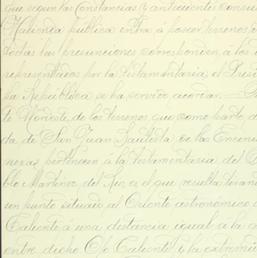 que segun las constancias y antecedente
Hacienda pública entra á poseer terrenos
todas las presunciones corresponden á los
representados por la testamentaria, el Presi
la República se ha servido acordar:
te Noreste de los terrenos que como parte
da de San Juan Bautista de las Encin
nezas pertenecen á la testamentaria del
blo Martinez del Rio, es el que resulta
un punto situado al Oriente astronómico
Caliente á una distancia igual á la
entre dicho Ojo Caliente i la